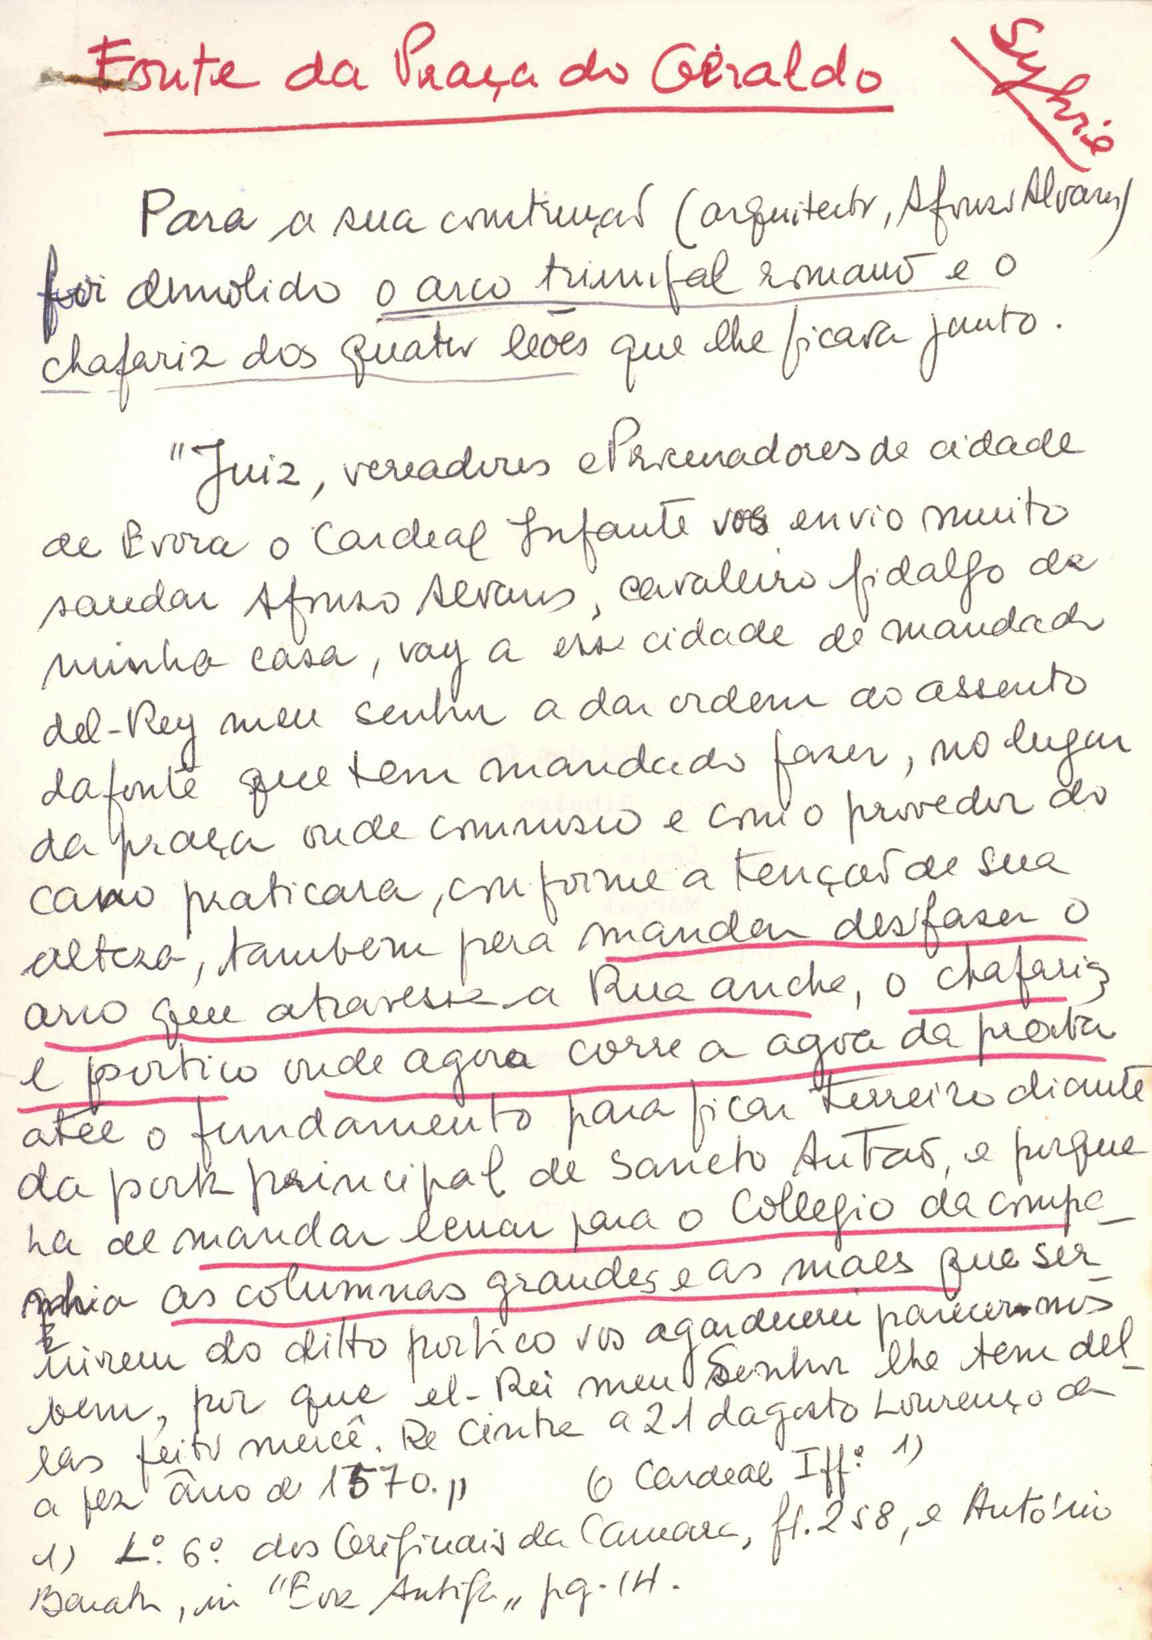 Fonte da Praça do Giraldo
Sylvie
Para a sua construção (arquitecto, Afonso Alvares)
foi demolido o arco triunfal romano e o
chafariz dos quatro leões que lhe ficava junto.
"Juiz, vereadores e Procuradores de cidade
de Evora o Cardeal Infante vos envio muito
saudar Afonso Alvares, cavaleiro fidalgo da
minha casa, vay a essa cidade de mandado
del-Rey meu senhor a dar ordem ao assento
da fonte que tem mandado fazer, no lugar
da praça onde comvosco e com o provedor do
cano praticara, conforme a tenção de sua
alteza, tambem pera mandar desfazer o
arco que atravessa a Rua ancha, o chafariz
e portico onde agora corre a agoa da prata
atée o fundamento para ficar terreiro diante
da porta principal de Sancto Antão, e porque
ha de mandar levar para o Collegio da compa-
nhia as columnas grandes e as maes que ser-
virem do ditto portico vos agardecerei parecer-nos
bem, por que el-Rei meu Senhor lhe tem del-
las feito mercê. De Cintra a 21 dagosto Lourenço da
a fez âno de 1570.„ O Cardeal Iff: 1)
1) L.º 6.º dos Originais da Camara, fl. 258, e António
Barata, in "Evora Antiga„ pg. 14.